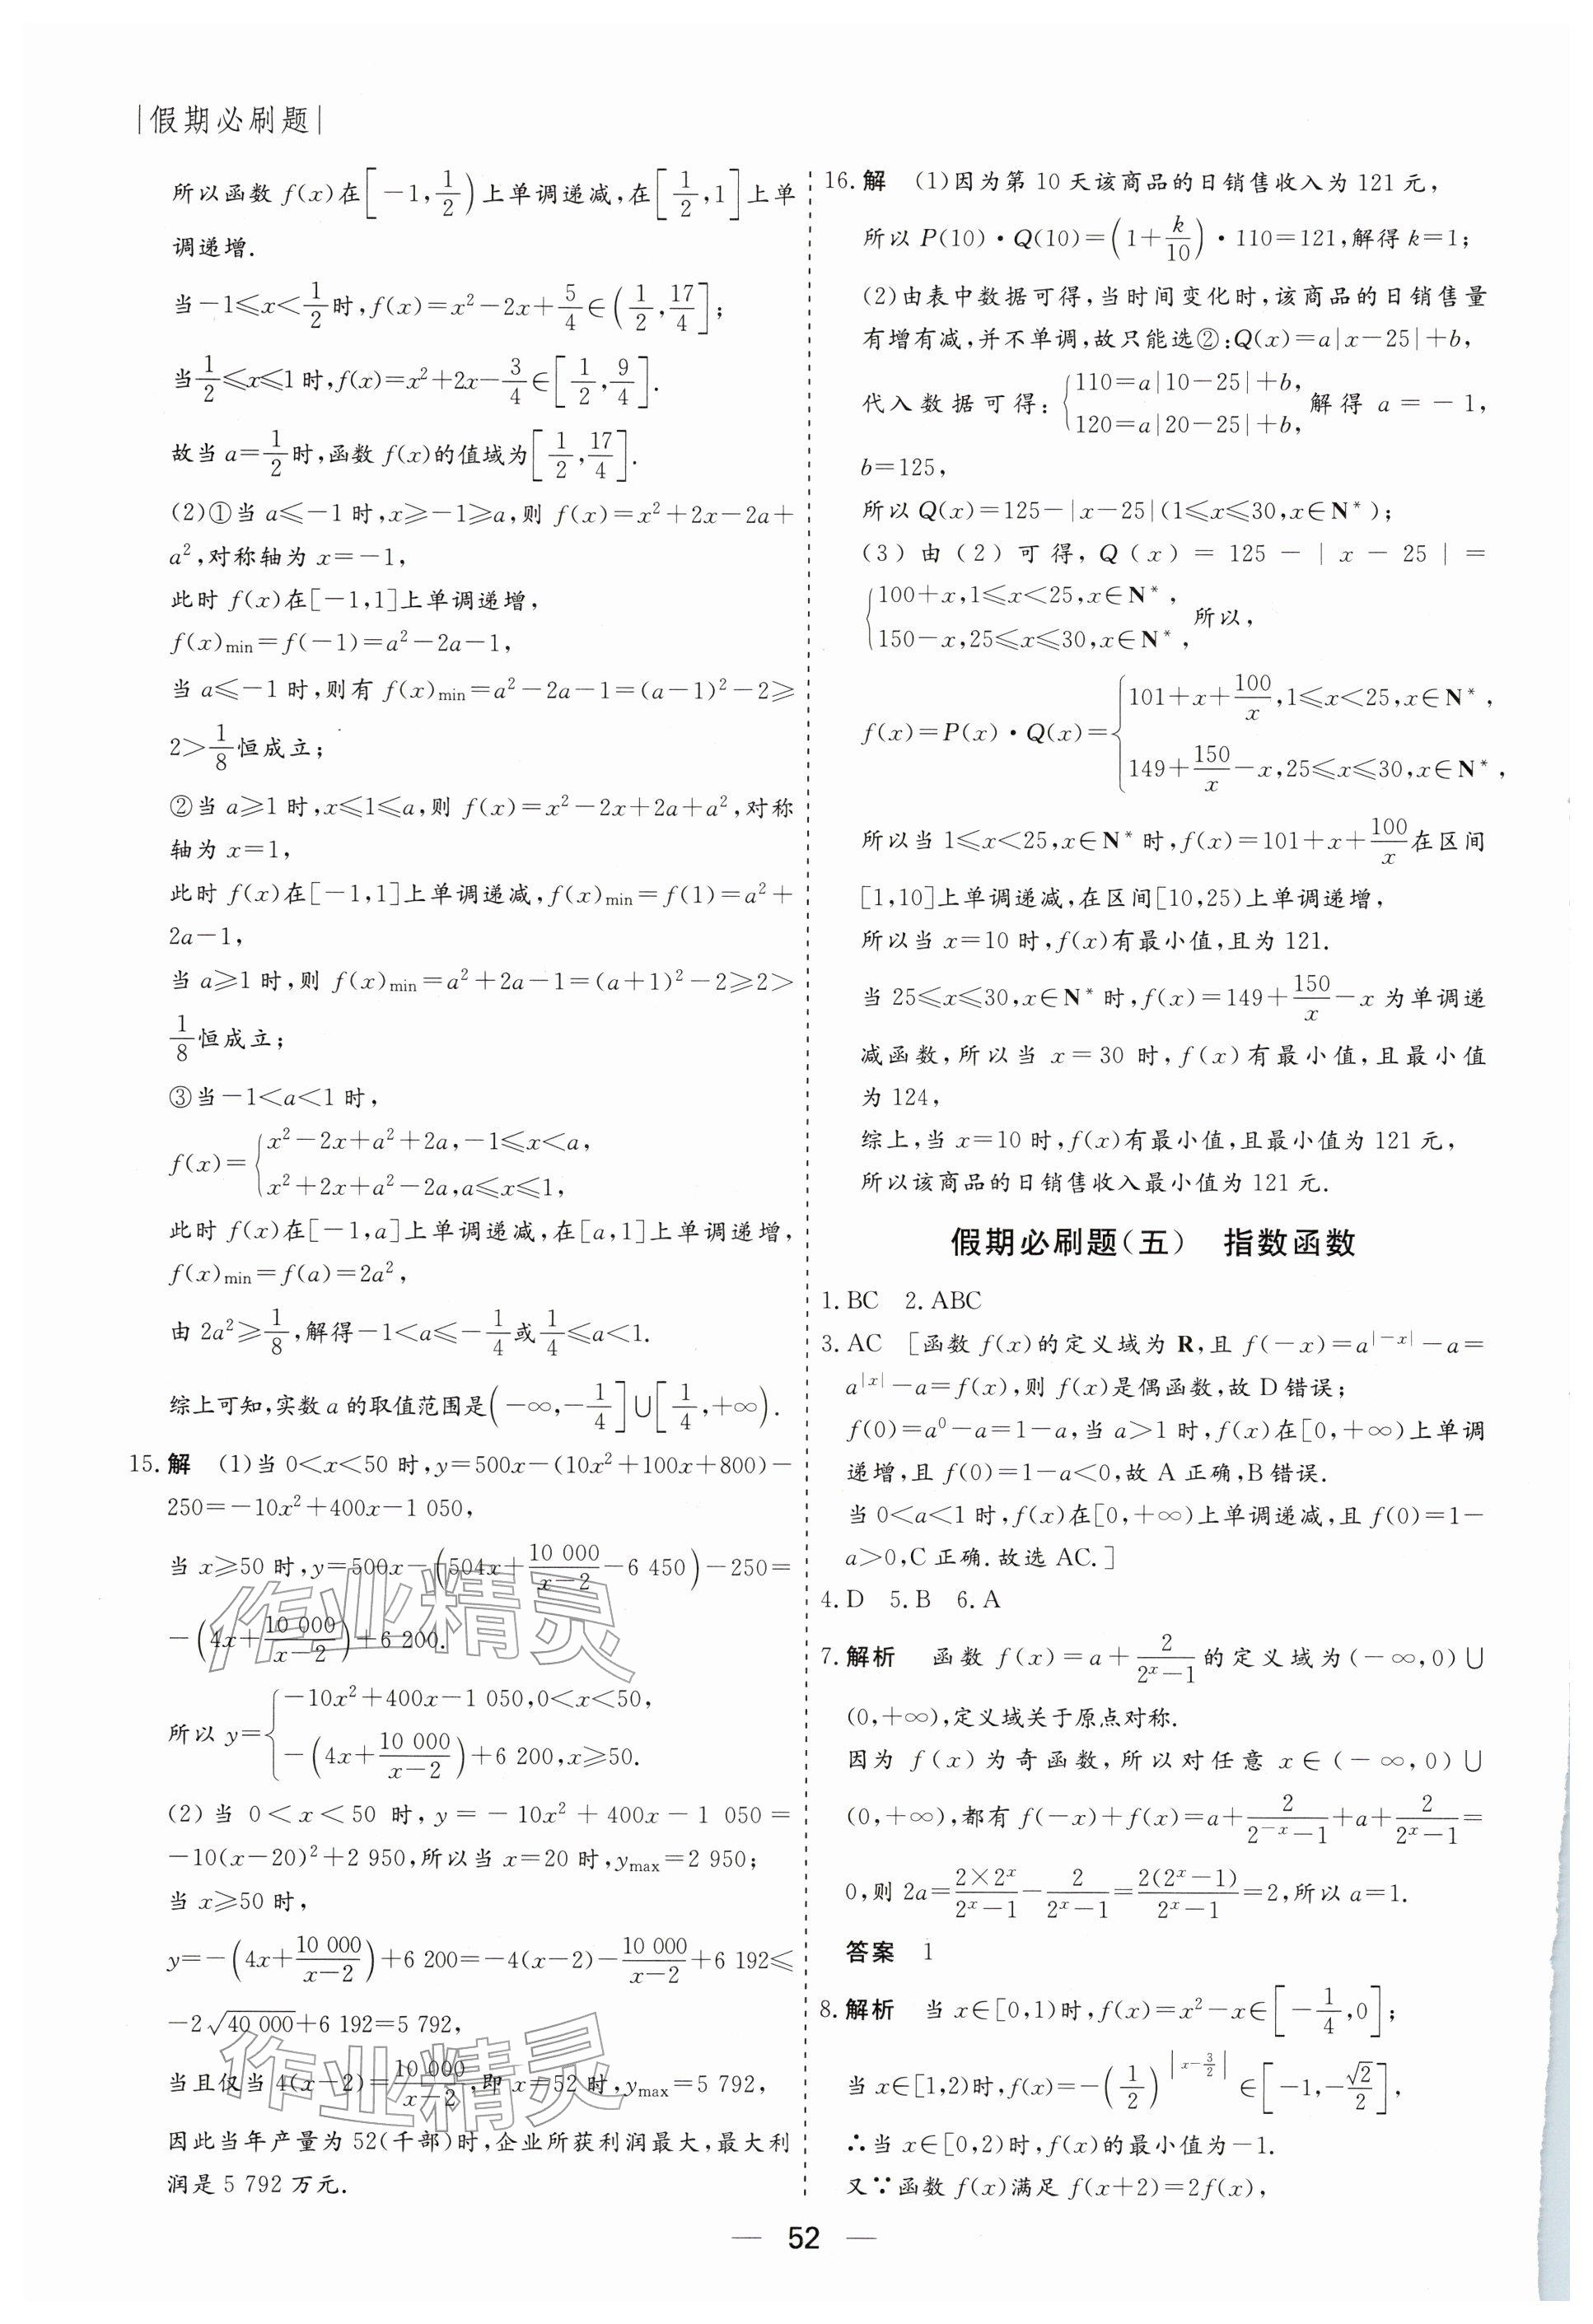 |假期必刷题|
所以函数 f(x)在[－1,1/2)上单调递减,在[1/2,1]上单
调递增.
当－1≤x＜1/2时,f(x)＝x²－2x＋5/4∈(1/2,17/4];
当1/2≤x≤1时,f(x)＝x²＋2x－3/4∈[1/2,9/4].
故当 a＝1/2时,函数 f(x)的值域为[1/2,17/4].
(2)①当 a≤－1时,x≥－1≥a,则 f(x)＝x²＋2x－2a＋
a²,对称轴为 x＝－1,
此时 f(x)在[－1,1]上单调递增,
f(x)min＝f(－1)＝a²－2a－1,
当 a≤－1时,则有 f(x)min＝a²－2a－1＝(a－1)²－2≥
2＞1/8恒成立;
②当 a≥1时,x≤1≤a,则 f(x)＝x²－2x＋2a＋a²,对称
轴为 x＝1,
此时 f(x)在[－1,1]上单调递减,f(x)min＝f(1)＝a²＋
2a－1,
当 a≥1时,则 f(x)min＝a²＋2a－1＝(a＋1)²－2≥2＞
1/8恒成立;
③当－1＜a＜1时,
f(x)＝{x²－2x＋a²＋2a,－1≤x＜a,
x²＋2x＋a²－2a,a≤x≤1,
此时 f(x)在[－1,a]上单调递减,在[a,1]上单调递增,
f(x)min＝f(a)＝2a²,
由 2a²≥1/8,解得－1＜a≤－1/4或1/4≤a＜1.
综上可知,实数 a 的取值范围是(－∞,－1/4]∪[1/4,＋∞).
15. 解 (1)当 0＜x＜50时,y＝500x－(10x²＋100x＋800)－
250＝－10x²＋400x－1 050,
当 x≥50时,y＝500x－(504x＋10 000/(x－2)－6 450)－250＝
－(4x＋10 000/(x－2))＋6 200.
所以 y＝{－10x²＋400x－1 050,0＜x＜50,
－(4x＋10 000/(x－2))＋6 200,x≥50.
(2)当 0＜x＜50时,y＝－10x²＋400x－1 050＝
－10(x－20)²＋2 950,所以当 x＝20时,ymax＝2 950;
当 x≥50时,
y＝－(4x＋10 000/(x－2))＋6 200＝－4(x－2)－10 000/(x－2)＋6 192≤
－2√40 000＋6 192＝5 792,
当且仅当 4(x－2)＝10 000/(x－2),即 x＝52时,ymax＝5 792,
因此当年产量为 52(千部)时,企业所获利润最大,最大利
润是 5 792 万元.
16. 解 (1)因为第 10 天该商品的日销售收入为 121 元,
所以 P(10)·Q(10)＝(1＋k/10)·110＝121,解得 k＝1;
(2)由表中数据可得,当时间变化时,该商品的日销售量
有增有减,并不单调,故只能选②:Q(x)＝a|x－25|＋b,
代入数据可得:{110＝a|10－25|＋b, 解得 a＝－1,
120＝a|20－25|＋b,
b＝125,
所以 Q(x)＝125－|x－25|(1≤x≤30,x∈N*);
(3)由(2)可得,Q(x)＝125－|x－25|＝
{100＋x,1≤x＜25,x∈N*, 所以,
150－x,25≤x≤30,x∈N*,
f(x)＝P(x)·Q(x)＝{101＋x＋100/x,1≤x＜25,x∈N*,
149＋150/x－x,25≤x≤30,x∈N*,
所以当 1≤x＜25,x∈N*时,f(x)＝101＋x＋100/x在区间
[1,10]上单调递减,在区间[10,25)上单调递增,
所以当 x＝10时,f(x)有最小值,且为 121.
当 25≤x≤30,x∈N*时,f(x)＝149＋150/x－x 为单调递
减函数,所以当 x＝30时,f(x)有最小值,且最小值
为 124,
综上,当 x＝10时,f(x)有最小值,且最小值为 121 元,
所以该商品的日销售收入最小值为 121 元.
假期必刷题(五) 指数函数
1. BC 2. ABC
3. AC [函数 f(x)的定义域为 R,且 f(－x)＝a^|－x|－a＝
a^|x|－a＝f(x),则 f(x)是偶函数,故 D 错误;
f(0)＝a⁰－a＝1－a,当 a＞1时,f(x)在[0,＋∞)上单调
递增,且 f(0)＝1－a＜0,故 A 正确,B 错误.
当 0＜a＜1时,f(x)在[0,＋∞)上单调递减,且 f(0)＝1－
a＞0,C 正确.故选 AC.]
4. D 5. B 6. A
7. 解析 函数 f(x)＝a＋2/(2^x－1)的定义域为(－∞,0)∪
(0,＋∞),定义域关于原点对称.
因为 f(x)为奇函数,所以对任意 x∈(－∞,0)∪
(0,＋∞),都有 f(－x)＋f(x)＝a＋2/(2^－x－1)＋a＋2/(2^x－1)＝
0,则 2a＝2×2^x/(2^x－1)－2/(2^x－1)＝2(2^x－1)/(2^x－1)＝2,所以 a＝1.
答案 1
8. 解析 当 x∈[0,1)时,f(x)＝x²－x∈[－1/4,0];
当 x∈[1,2)时,f(x)＝－(1/2)^|x－3/2|∈[－1,－√2/2],
∴当 x∈[0,2)时,f(x)的最小值为－1.
又∵函数 f(x)满足 f(x＋2)＝2f(x),
— 52 —
作业精灵
作业精灵